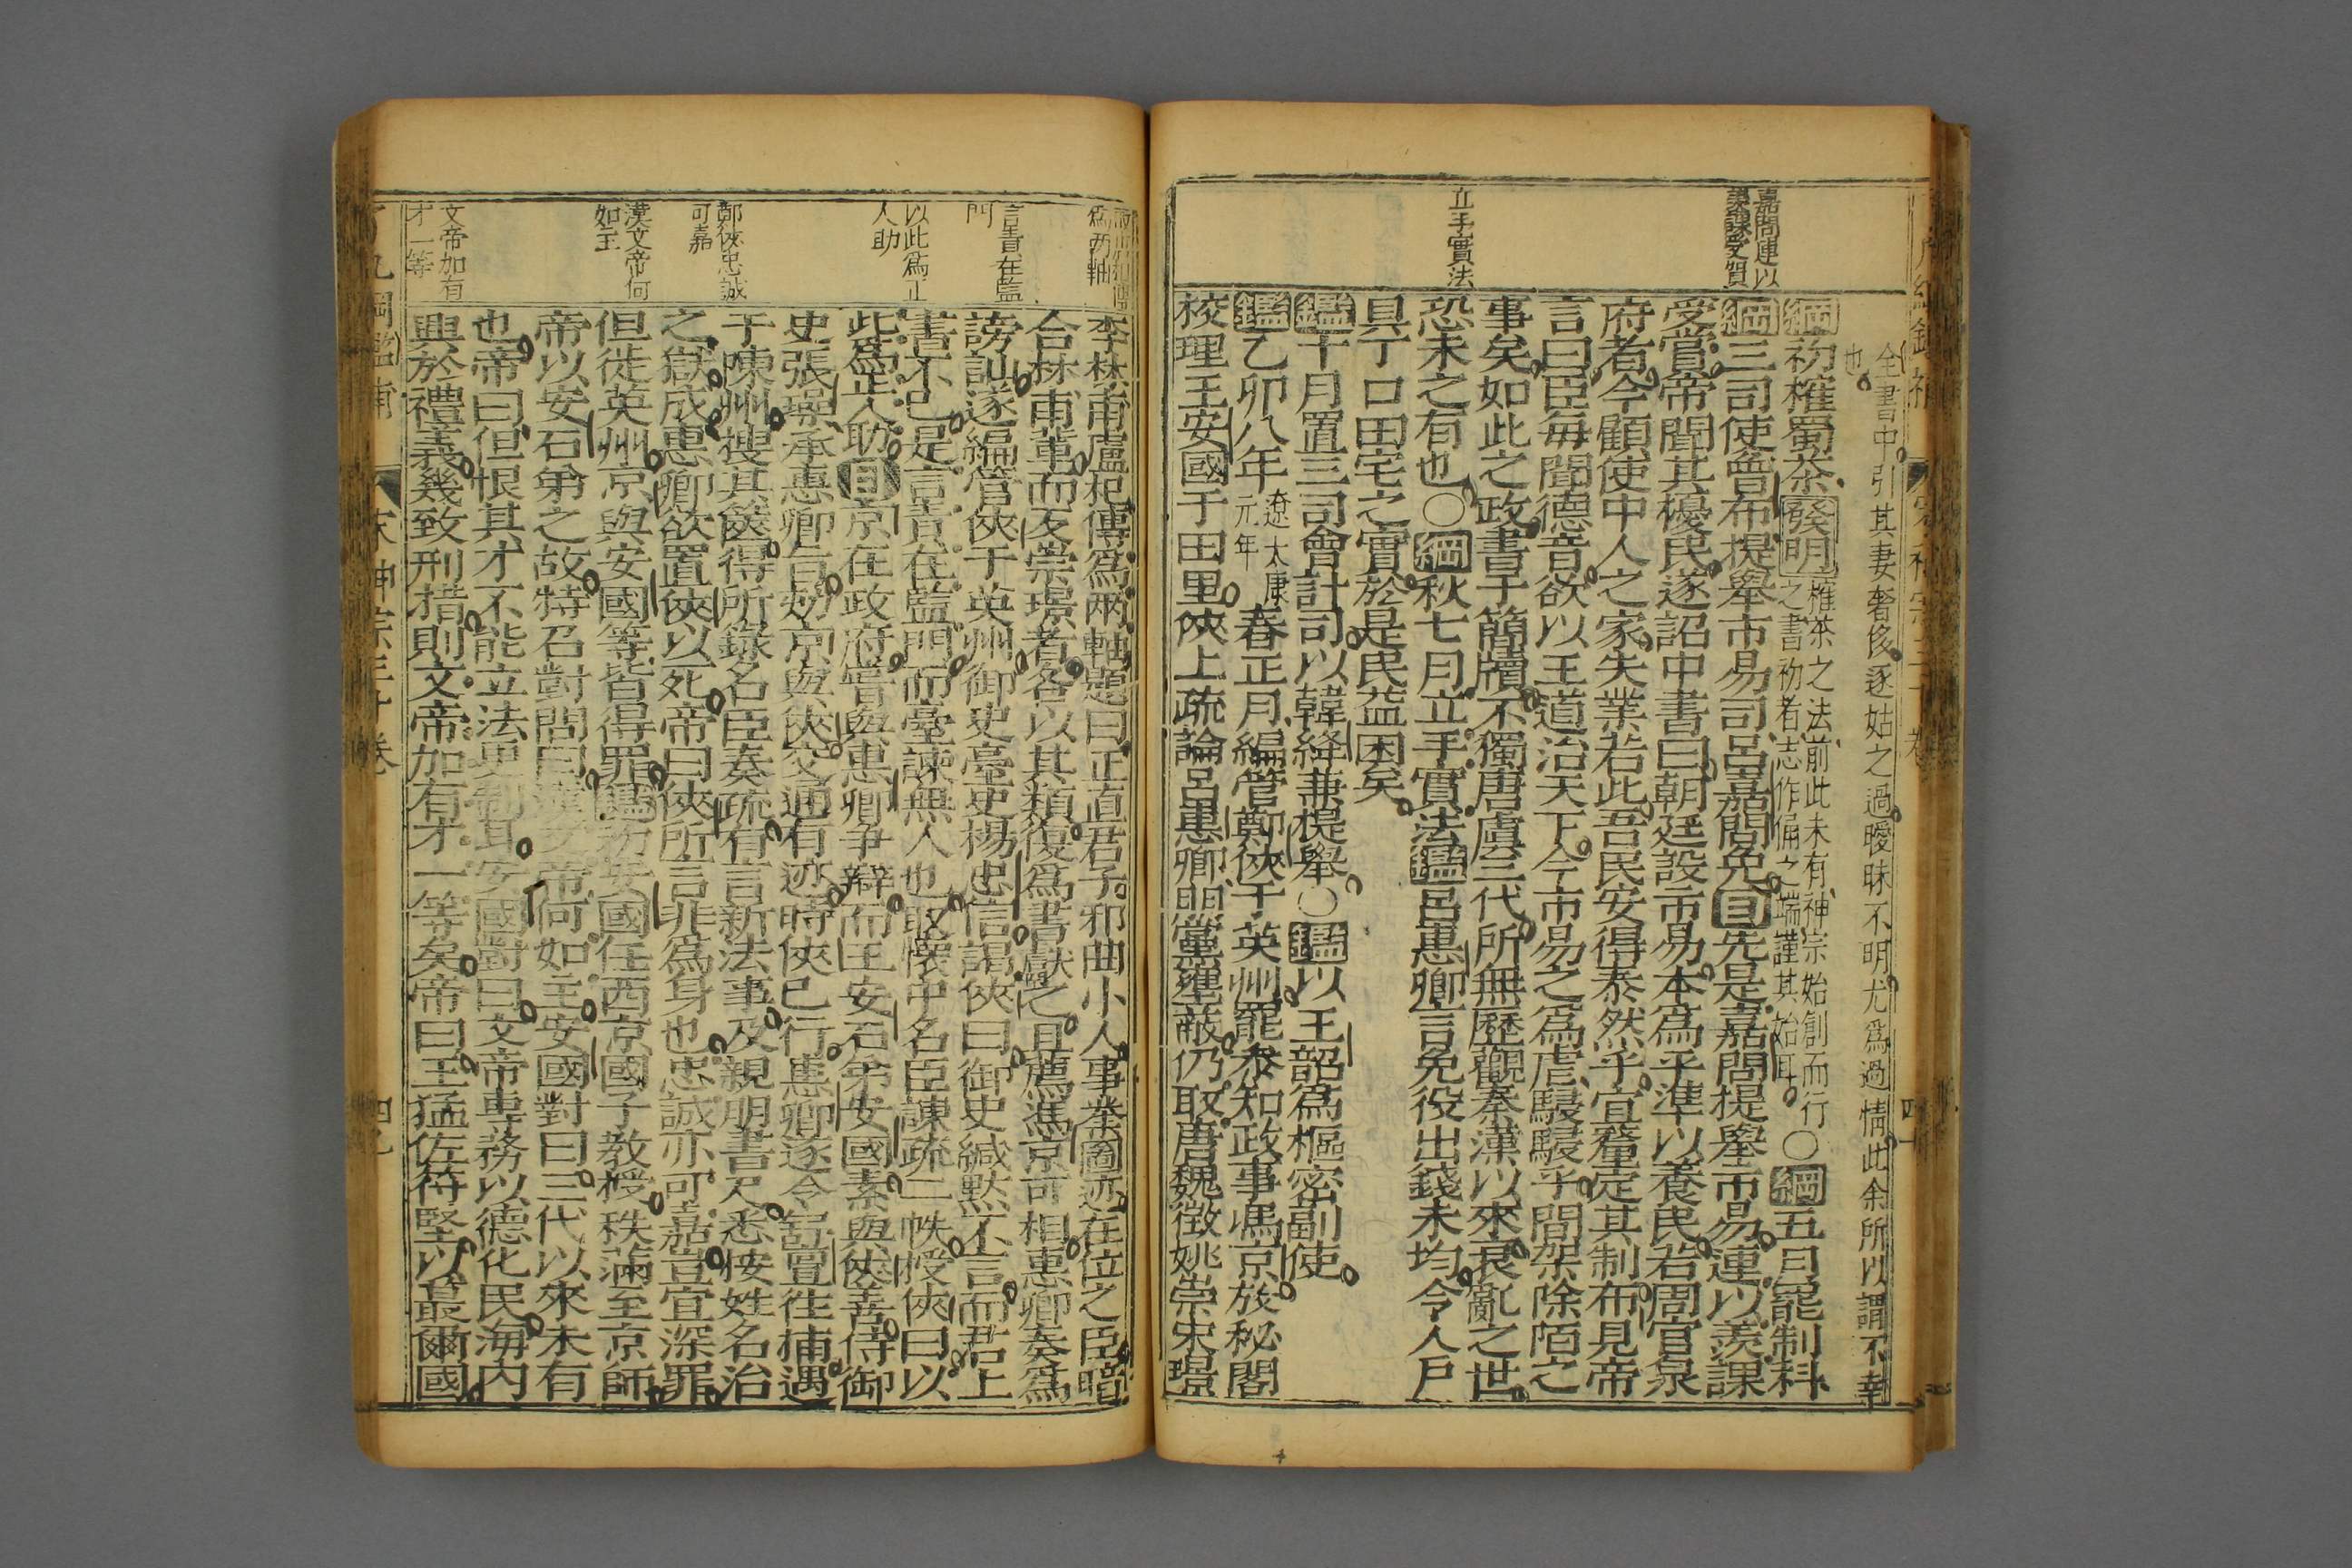 嘉問連以
羨課受賞
立手實法
全書中引其妻奢侈逐姑之過曖昧不明尤爲過情此余所以謂不幸
也
綱初榷蜀茶發明榷茶之法前此未有神宗始創而行
之書初者志作俑之端謹其始耳○綱五月罷制科
綱三司使曾布提舉市易司呂嘉問免目先是嘉問提舉市易連以羨課
受賞帝聞其擾民遂詔中書曰朝廷設市易本爲平準以養民若周官泉
府者今顧使中人之家失業若此吾民安得泰然乎宜釐定其制布見帝
言曰臣每聞德音欲以王道治天下今市易之爲虐駸駸乎間架除陌之
事矣如此之政書于簡牘不獨唐虞三代所無歷觀秦漢以來衰亂之世
恐未之有也○綱秋七月立手實法鑑呂惠卿言免役出錢未均令人戶
具丁口田宅之實於是民益困矣
鑑十月置三司會計司以韓絳兼提舉○鑑以王韶爲樞密副使
鑑乙卯八年遼太康元年春正月編管鄭俠于英州罷叅知政事馮京放秘閣
校理王安國于田里俠上疏論呂惠卿朋黨壅蔽仍取唐魏徵姚崇宋璟
爲兩軸
言責在監
門
以此爲正
人助
鄭俠忠誠
可嘉
漢文帝何
如主
文帝加有
才一等
李林甫盧杞傳爲兩軸題曰正直君子邪曲小人事業圖迹在位之臣暗
合林甫輩而反崇璟者各以其類復爲書獻之且薦馮京可相惠卿奏爲
謗訕遂編管俠于英州御史臺吏楊忠信謁俠曰御史緘默不言而君上
書不已是言責在監門而臺諫無人也取懷中名臣諫疏二帙授俠曰以
此爲正人助目京在政府嘗與惠卿爭辯而王安石弟安國素與俠善侍御
史張璪承惠卿旨劾京與俠交通有迹時俠已行惠卿遂令舒亶往捕遇
于陳州搜其篋得所錄名臣奏疏有言新法事及親朋書尺悉按姓名治
之獄成惠卿欲置俠以死帝曰俠所言非爲身也忠誠亦可嘉豈宜深罪
但徙英州京與安國等皆得罪鑑初安國任西京國子教授秩滿至京師
帝以安石弟之故特召對問曰漢文帝何如主安國對曰三代以來未有
也帝曰但恨其才不能立法更制耳安國對曰文帝專務以德化民海內
興於禮義幾致刑措則文帝加有才一等矣帝曰王猛佐苻堅以蕞爾國